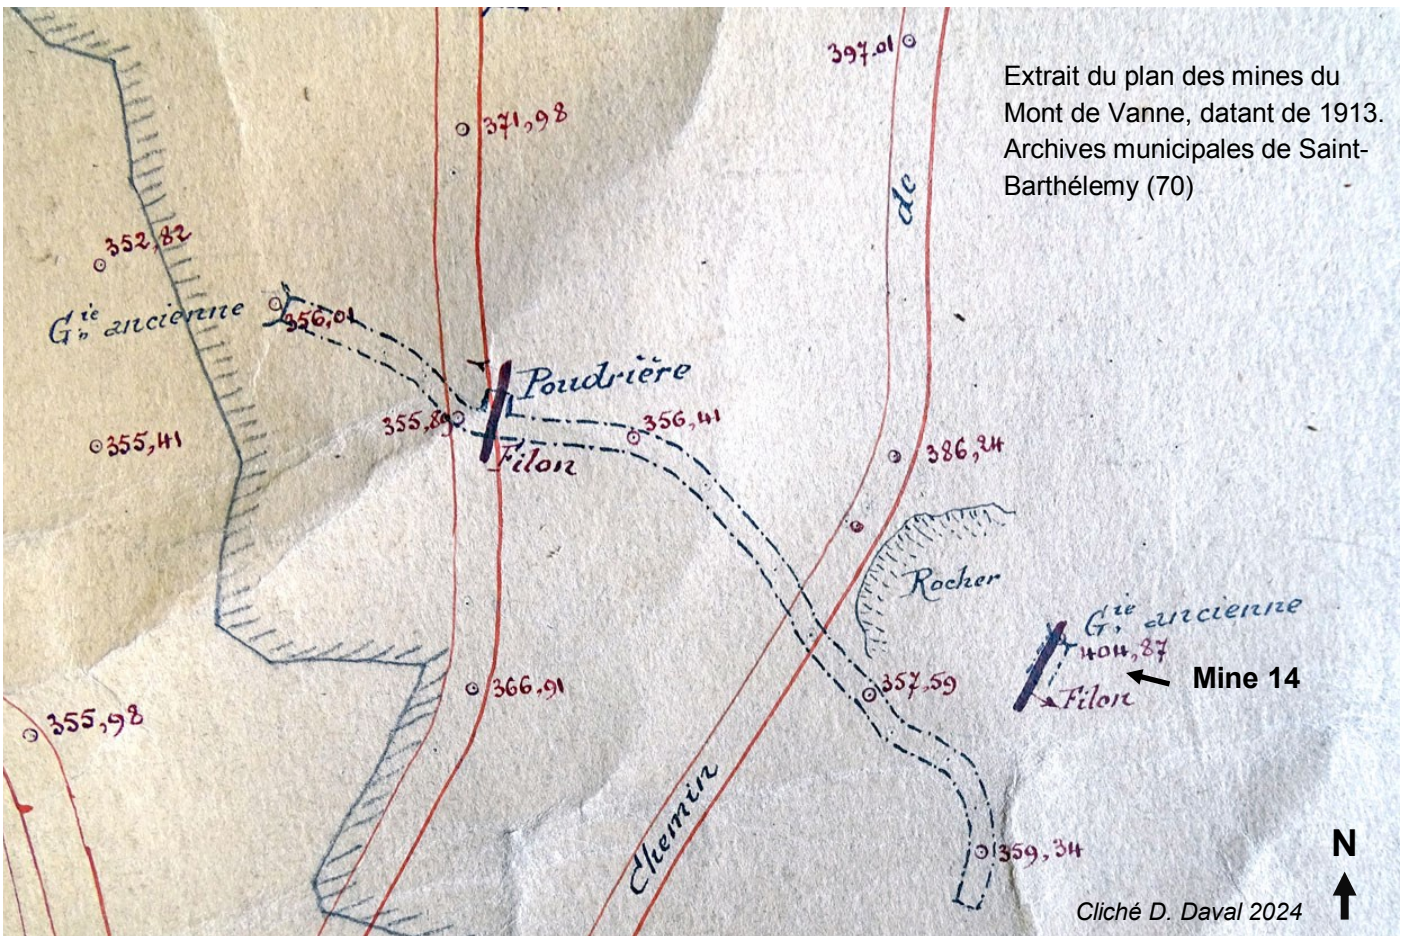 397.01
Extrait du plan des mines du
Mont de Vanne, datant de 1913.
Archives municipales de Saint-
Barthélemy (70)
371,98
de
352,82
Gie ancienne
356,01
Poudrière
355,89
356,41
355,41
Filon
386,24
Rocher
Gie ancienne
404,87
Mine 14
Filon
357,59
366,91
355,98
Chemin
359,34
N
Cliché D. Daval 2024